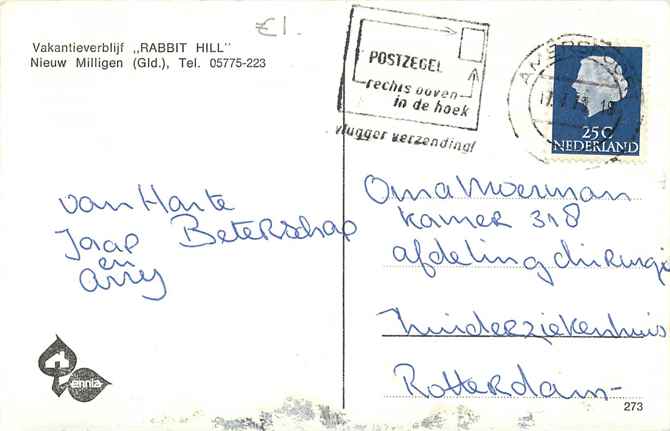 £1.
Vakantieverblijf „RABBIT HILL"
Nieuw Milligen (Gld.), Tel. 05775-223
POSTZEGEL
rechts boven
in de hoek
vlugger verzending!
AMERSFOORT
25C
NEDERLAND
van Harte
Beterschap
Jaap
en
Anny
Oma Moerman
kamer 318
afdeling chirurgie
Zuiderziekenhuis
Rotterdam-
ennia
273